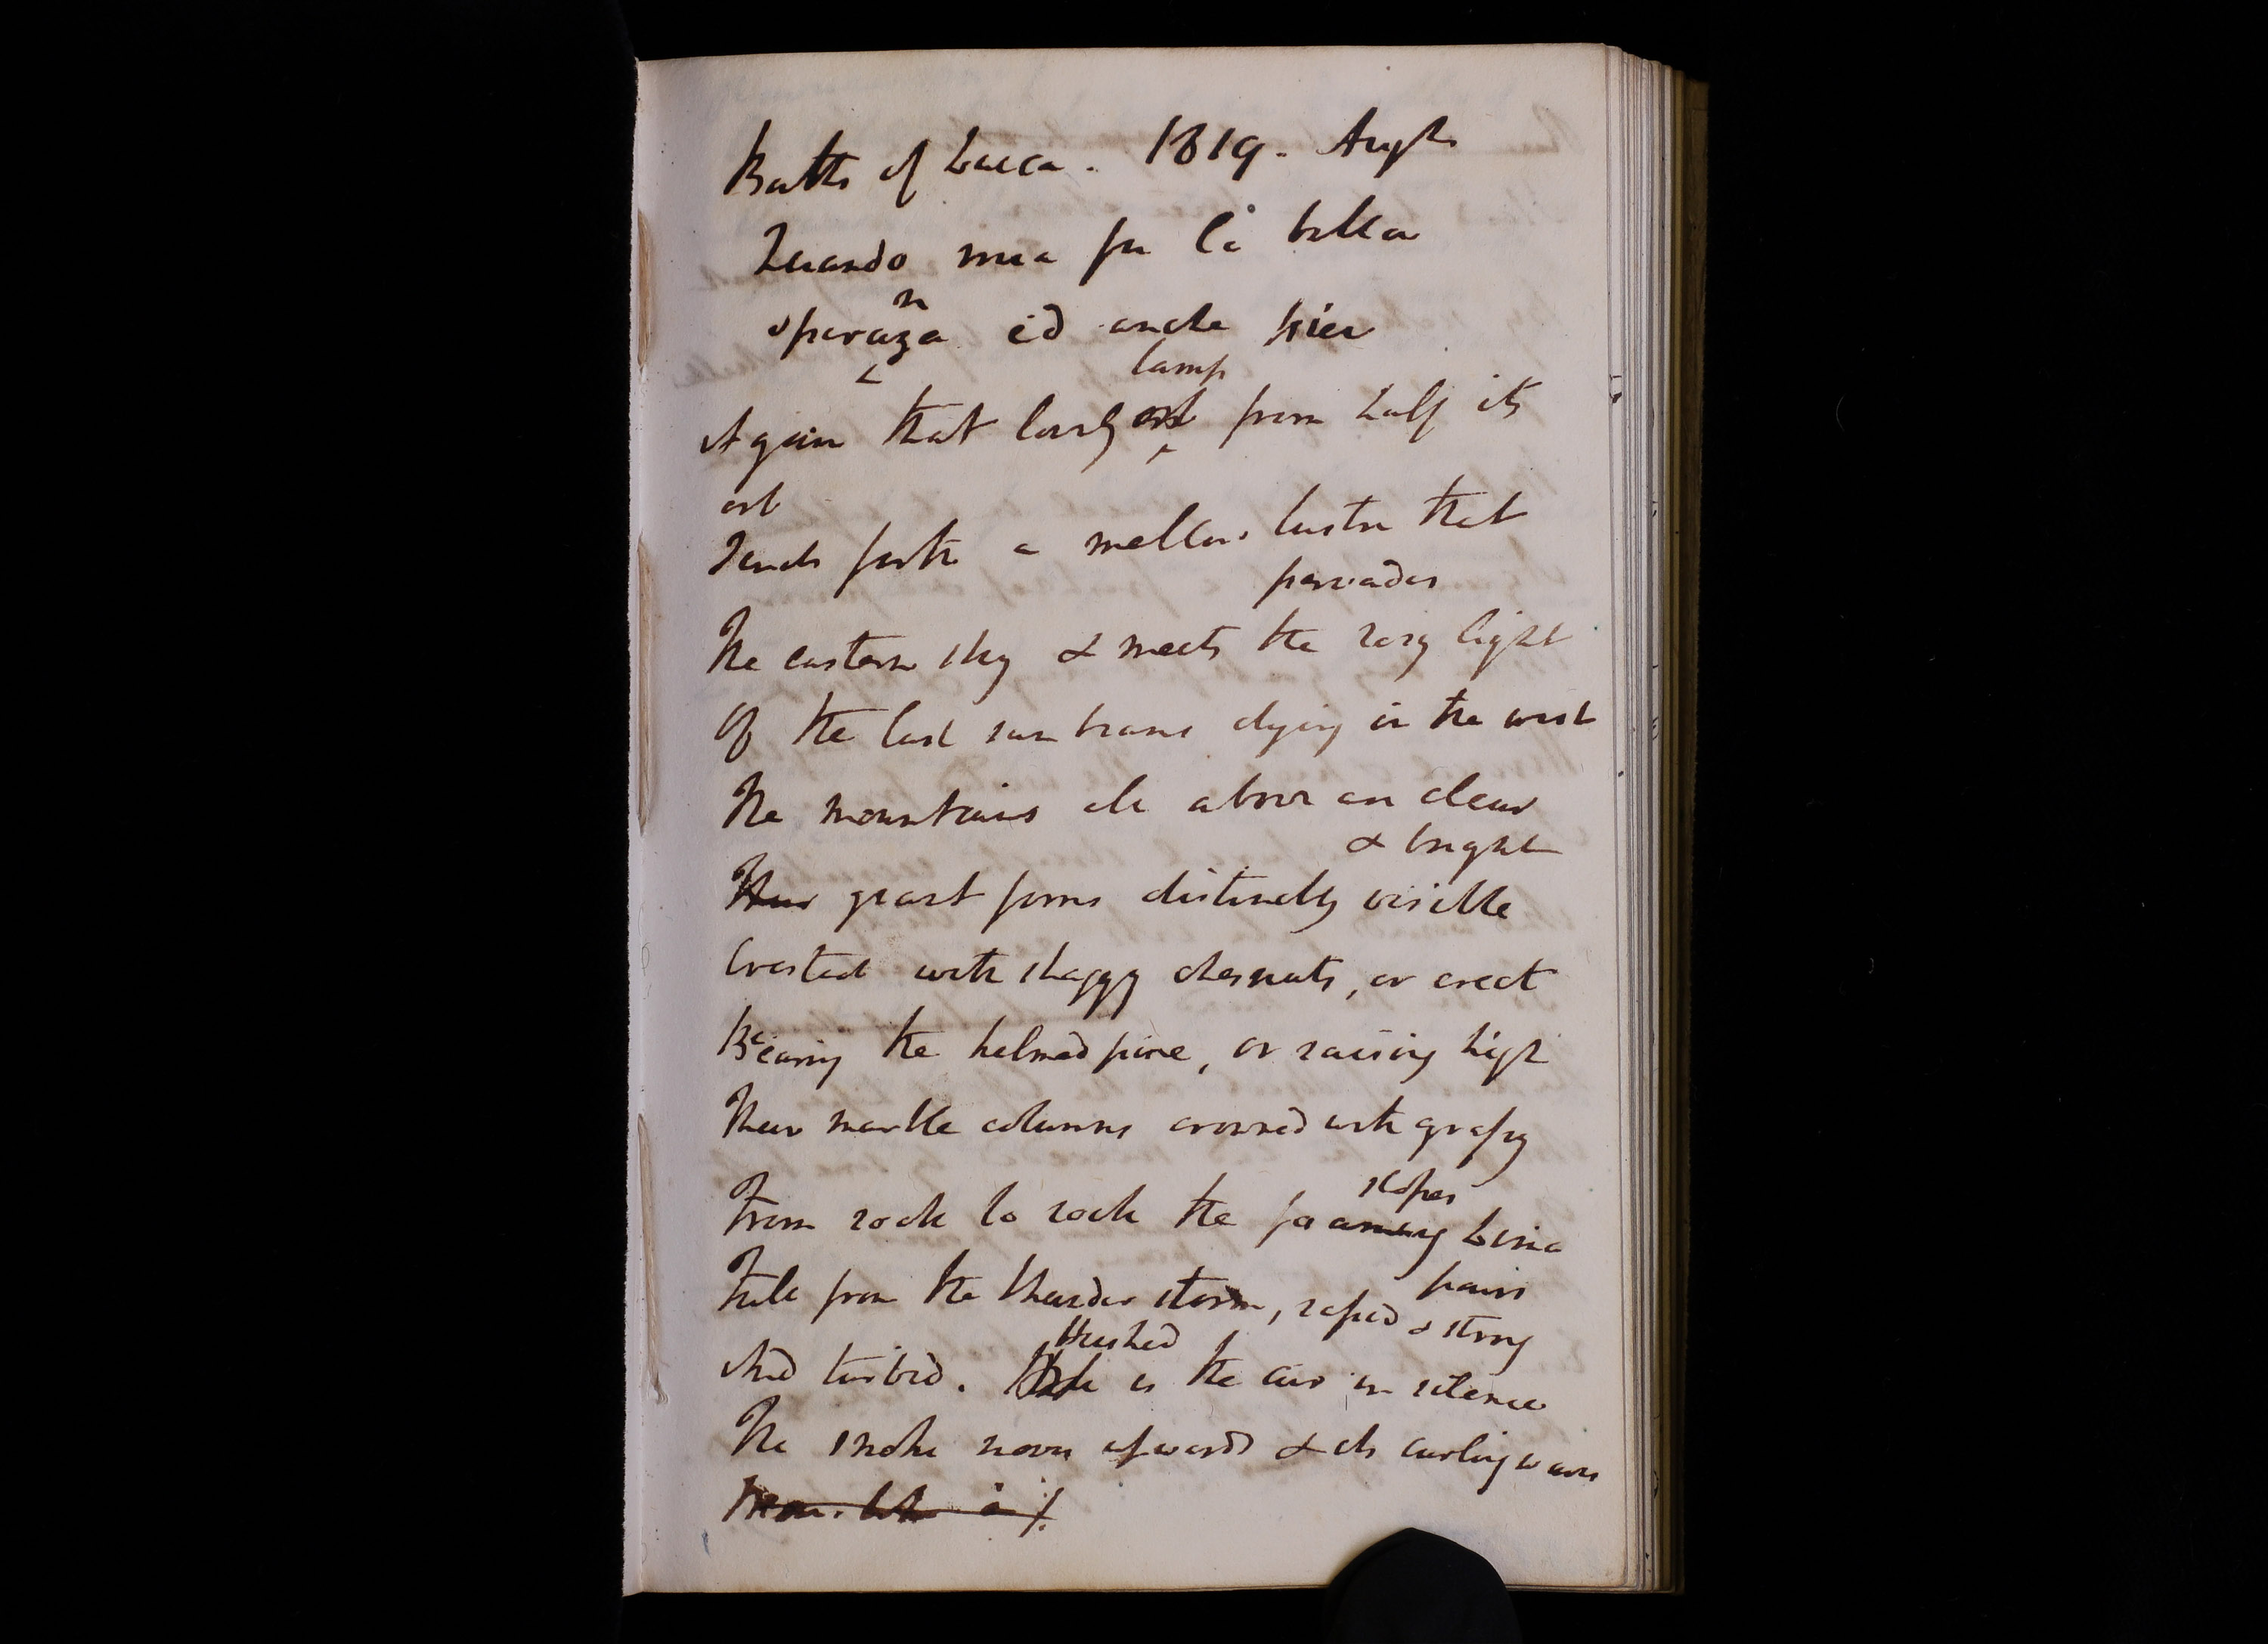 Baths of Lucca. 1819. Augst
Quando mia fu la bella
n
speraza ed anche
lamp
Again that lovely orb from half its
orb
Sends forth a mellow lustre that
pervades
The eastern sky & meets the rosy light
Of the last sun beams dying in the west
The mountains all above are clear
& bright
Their giant forms distinctly visible
Crested with shaggy chesnuts, or erect
Bearing the helmed pine, or raising high
Their marble columns crowned with grassy
slopes
From rock to rock the foaming Lima
pours
Full from the thunder storm, rapid & strong
And turbid. Hushed is the air in silence
The smoke moves upwards & its curling waves